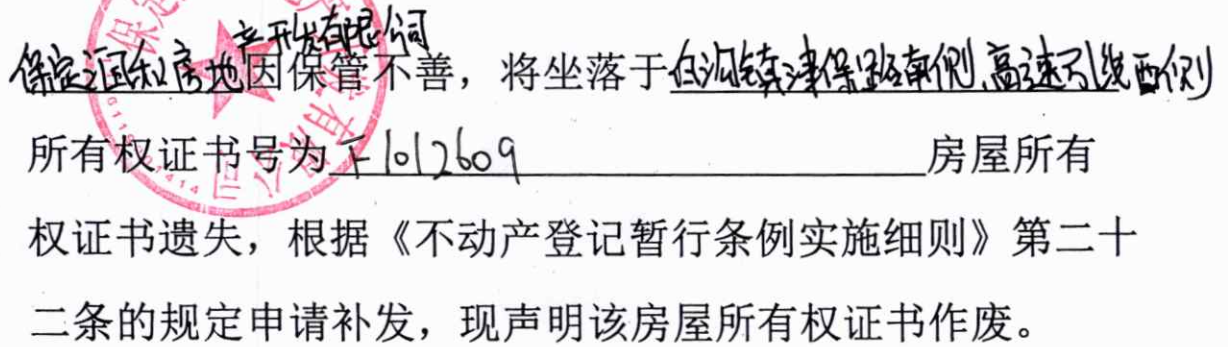 保定汇国和房地产开发有限公司因保管不善，将坐落于白沟镇津保路南侧、高速引线西侧
所有权证书号为F1012609房屋所有
权证书遗失，根据《不动产登记暂行条例实施细则》第二十
二条的规定申请补发，现声明该房屋所有权证书作废。